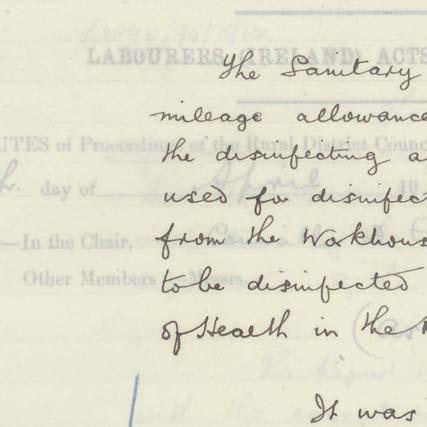 LABOURERS (IRELAND) ACTS
The Sanitary
mileage allowance
UTES of Proceedings of the Rural District Counc
the disinfecting a
day of April 19
used for disinfect
—In the Chair,
from the Workhous
Other Members Messrs.
to be disinfected
of Health in the
It was